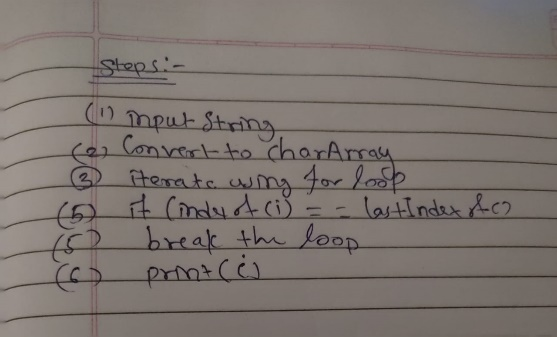 Steps:-
(1) input string
(2) Convert to CharArray
(3) iterate using for loop
(5) if (index of (i) == lastIndex of ()
(5) break the loop
(6) print (i)